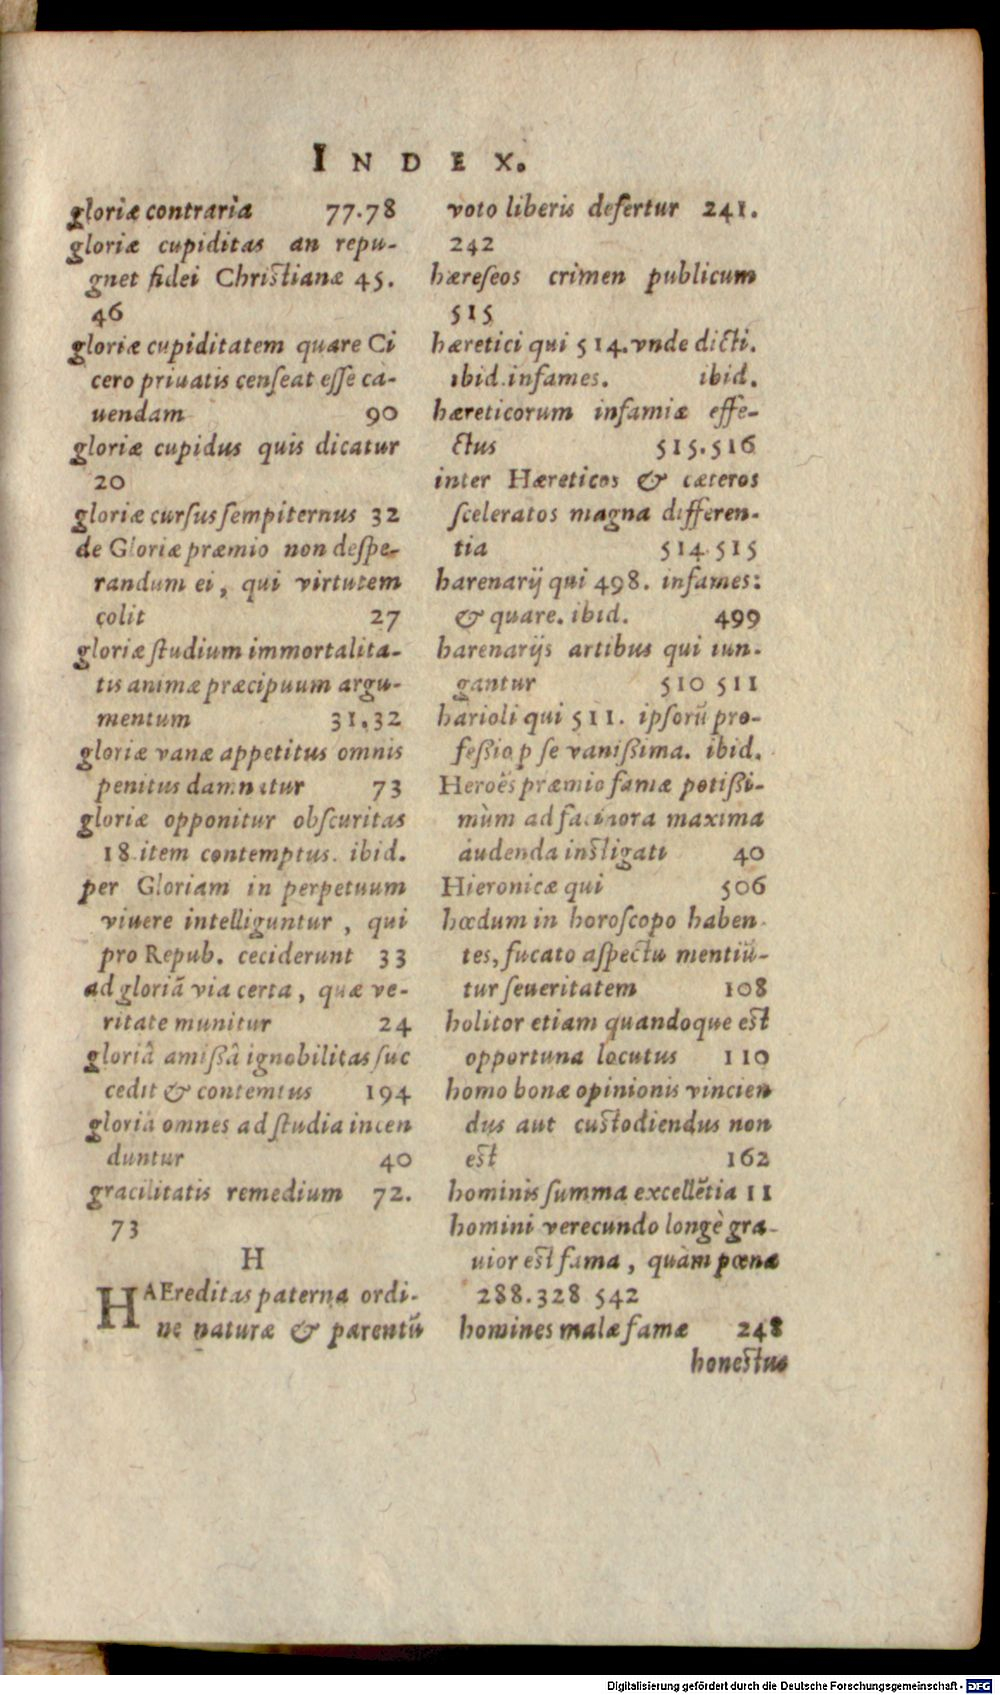 INDEX.
gloriæ contraria 77.78
gloriæ cupiditas an repu-
gnet fidei Christianæ 45.
46
gloriæ cupiditatem quare Ci
cero priuatis censeat esse ca-
uendam 90
gloriæ cupidus quis dicatur
20
gloriæ cursus sempiternus 32
de Gloriæ præmio non despe-
randum ei, qui virtutem
colit 27
gloriæ studium immortalita-
tis animæ præcipuum argu-
mentum 31.32
gloriæ vanæ appetitus omnis
penitus damnatur 73
gloriæ opponitur obscuritas
18. item contemptus. ibid.
per Gloriam in perpetuum
viuere intelliguntur, qui
pro Repub. ceciderunt 33
ad gloriã via certa, quæ ve-
ritate munitur 24
gloriâ amißâ ignobilitas suc
cedit & contemtus 194
gloria omnes ad studia incen
duntur 40
gracilitatis remedium 72.
73
H
HAEreditas paterna ordi-
ne naturæ & parentũ
voto liberis defertur 241.
242
hæreseos crimen publicum
515
hæretici qui 514. vnde dicti.
ibid. infames. ibid.
hæreticorum infamiæ effe-
ctus 515.516
inter Hæreticos & cæteros
sceleratos magna differen-
tia 514.515
harenarij qui 498. infames:
& quare. ibid. 499
harenarijs artibus qui iun-
gantur 510 511
harioli qui 511. ipsorũ pro-
feßio p se vanißima. ibid.
Heroës præmio famæ potißi-
mùm ad facinora maxima
audenda instigati 40
Hieronicæ qui 506
hœdum in horoscopo haben-
tes, fucato aspectu mentiũ-
tur seueritatem 108
holitor etiam quandoque est
opportuna locutus 110
homo bonæ opinionis vincien
dus aut custodiendus non
est 162
hominis summa excellẽtia 11
homini verecundo longè gra-
uior est fama, quàm pœna
288.328 542
homines malæ famæ 248
honestus
Digitalisierung gefördert durch die Deutsche Forschungsgemeinschaft - DFG